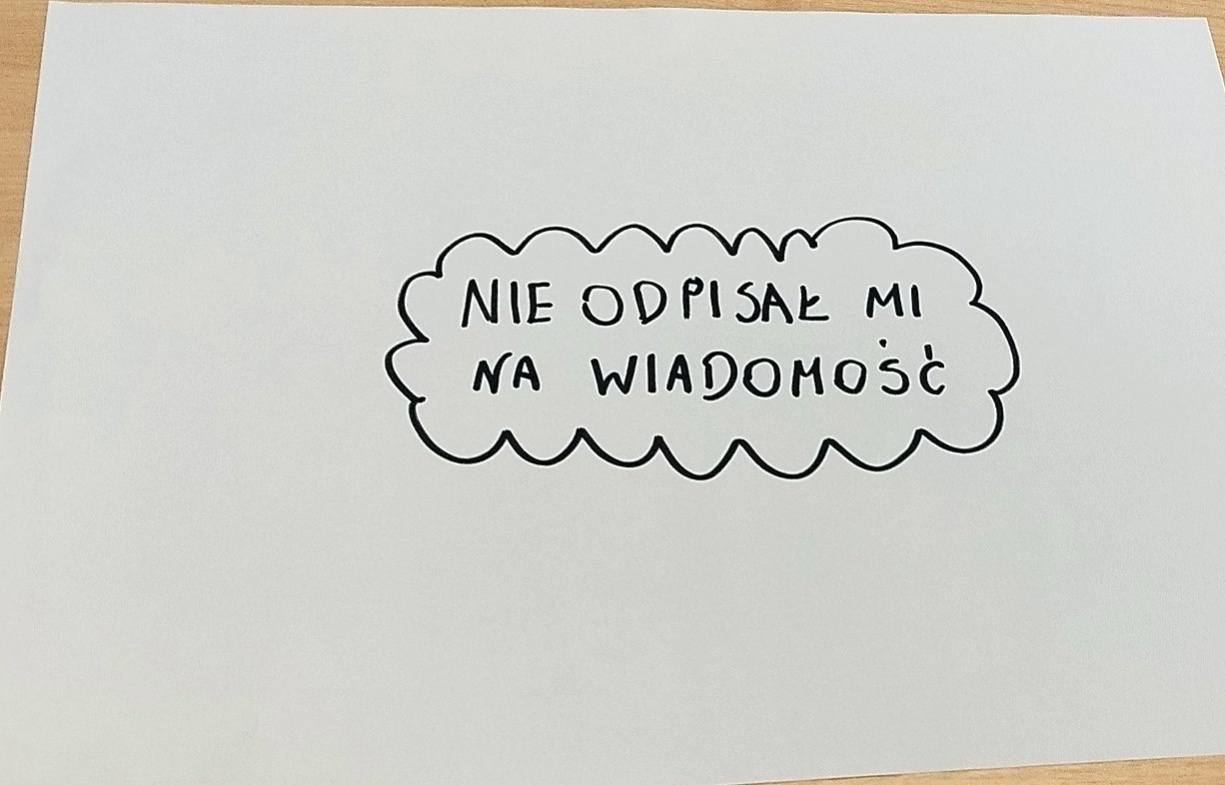 NIE ODPISAŁ MI
NA WIADOMOŚĆ